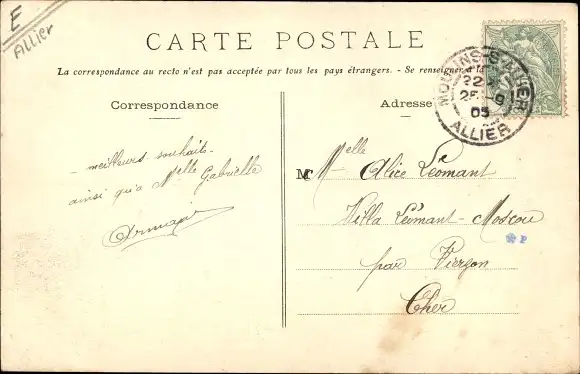 E
Allier
CARTE POSTALE
La correspondance au recto n'est pas acceptée par tous les pays étrangers. - Se renseigner à la
Correspondance
Adresse
MOULINS-S-ALLIER
25 -9
05
ALLIER
- meilleurs souhaits -
ainsi qu'à Melle Gabrielle
M Melle Alice Léomant
Villa Léomant - Moscou
par Vierzon
Cher